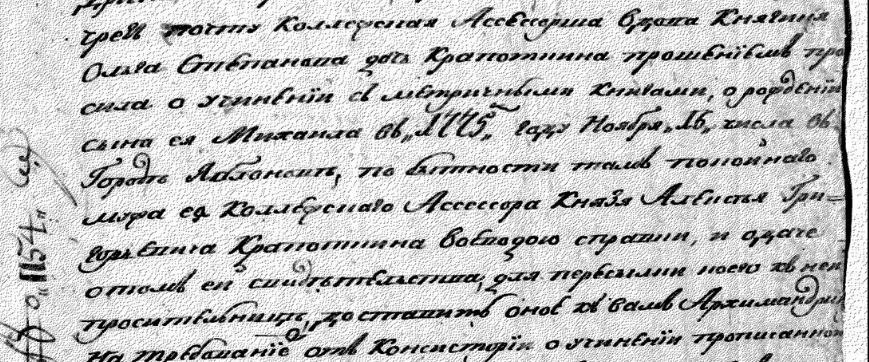 чрезъ почту Коллежская Ассесорша вдова Княгиня
Ольга Степанова дочь Крапоткина прошениемъ про
сила о учинении съ метричными книгами, о рождении
сына ея Михаила въ „1775„ году Ноября „16„ числа въ
Городѣ Яблоновѣ, по бытности тамъ покойнаго
мужа ея Коллежскаго Ассессора Князя Алексѣя Гри=
горьевича Крапоткина воеводою справки, и о даче
о томъ ей свидѣтельства, для пересылки коего къ ней
просительнице, доставить оное къ вамъ Архимандри
на требование отъ Консистории о учинении прописанной
„1154„